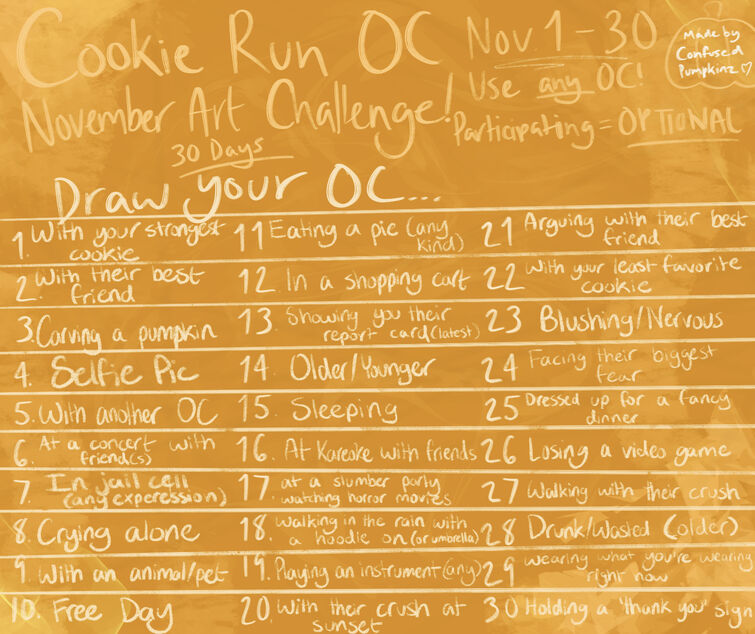 Cookie Run OC
November Art Challenge!
30 Days
Nov. 1-30
Use any OC!
Participating = OPTIONAL
Made by
Confused
Pumpkinz ♡
Draw your OC...
1. With your strongest
cookie
2. With their best
friend
3. Carving a pumpkin
4. Selfie Pic
5. With another OC
6. At a concert with
friend(s)
7. In jail cell
(any experession)
8. Crying alone
9. With an animal/pet
10. Free Day
11 Eating a pie (any
kind)
12. In a shopping cart
13. Showing you their
report card (latest)
14. Older/Younger
15. Sleeping
16. At Kareoke with friends
17. at a slumber party
watching horror movies
18. Walking in the rain with
a hoodie on (or umbrella)
19. Playing an instrument (any)
20. With their crush at
sunset
21 Arguing with their best
friend
22 With your least favorite
cookie
23 Blushing/Nervous
24 Facing their biggest
fear
25 Dressed up for a fancy
dinner
26 Losing a video game
27 Walking with their crush
28 Drunk/Wasted (older)
29 wearing what you're wearing
right now
30 Holding a "thank you" sign